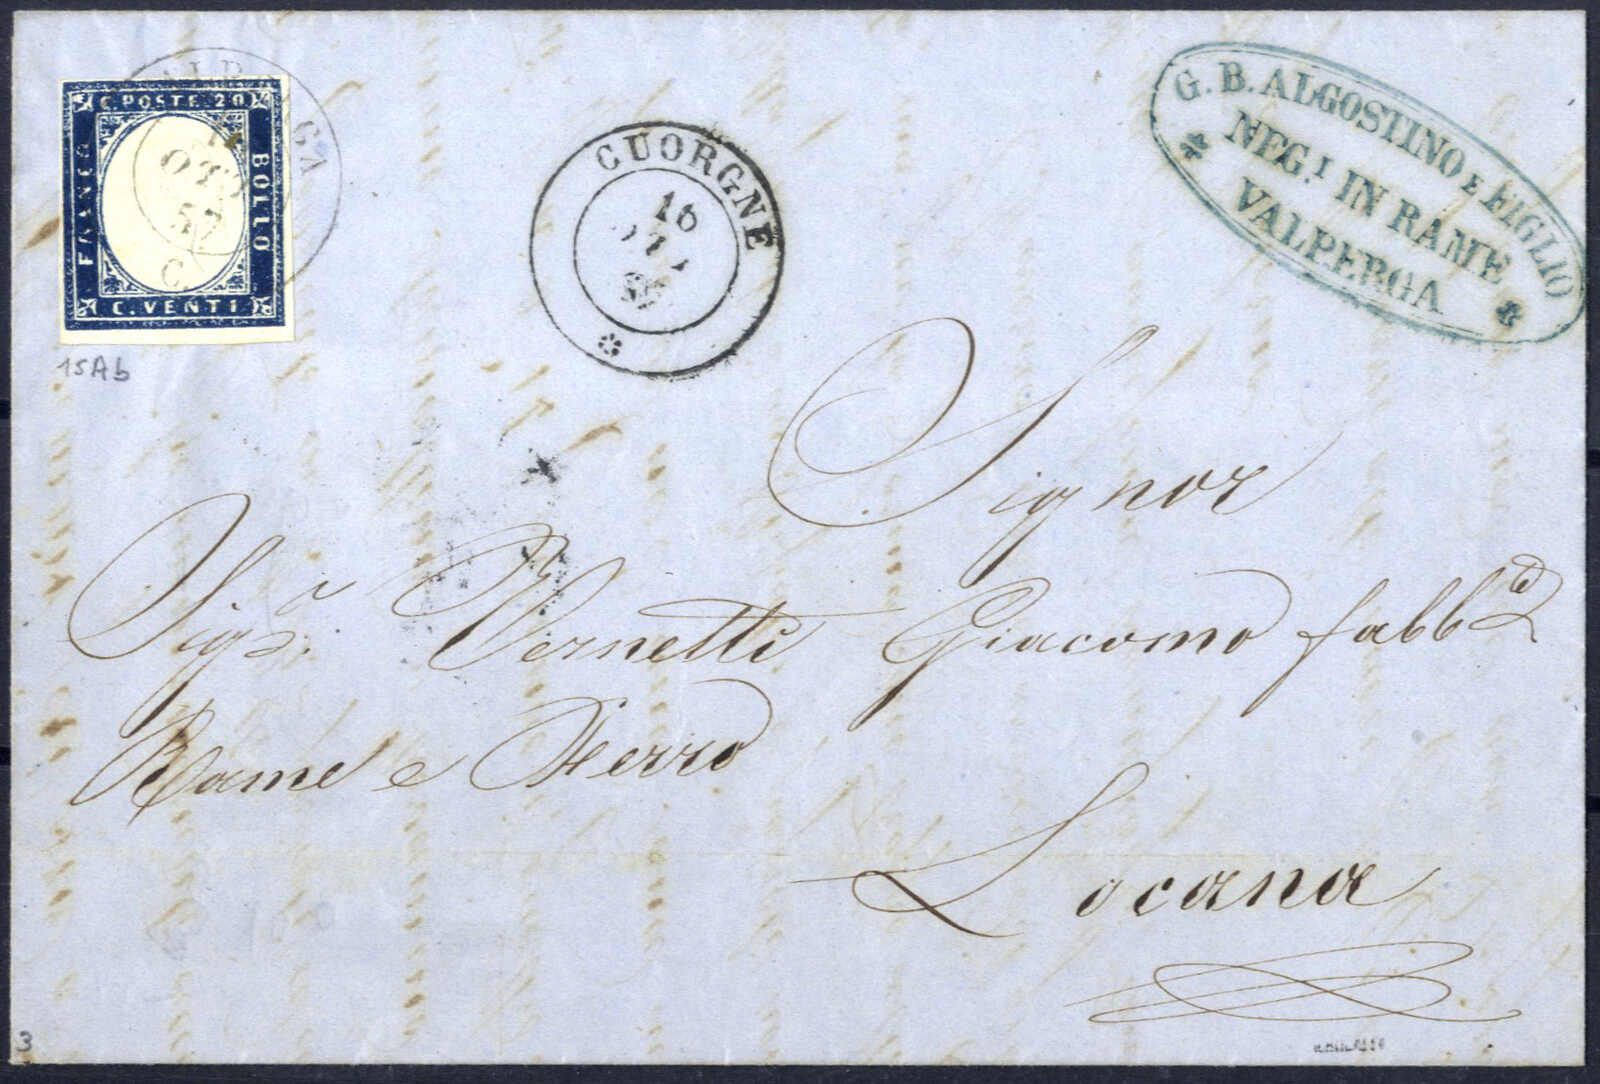 C. POSTE 20
FRANCO
BOLLO
C. VENTI
OTT
57
C.
15Ab
CUORGNE
16
57
G. B. ALGOSTINO E FIGLIO
NEG.I IN RAME
VALPERGA
Signor
Sig.r Vernetti Giacomo fabb.
Rame e Ferro
Locana
3